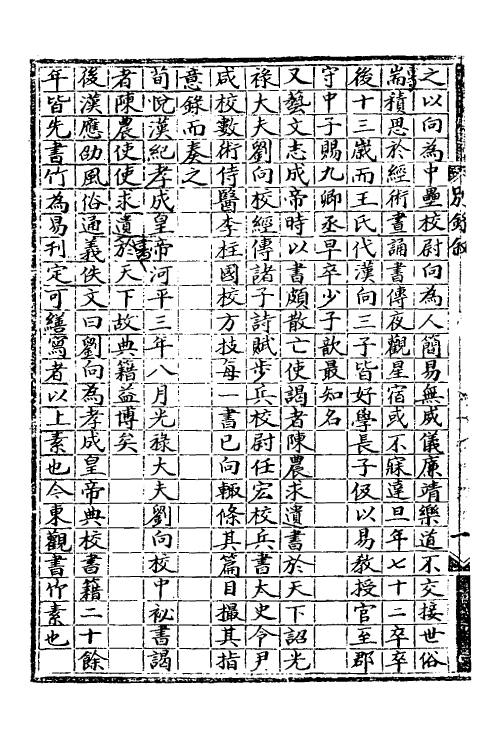 之以向為中壘校尉向為人簡易無威儀廉靖樂道不交接世俗
耑積思於經術晝誦書傳夜觀星宿或不寐達旦年七十二卒卒
後十三歲而王氏代漢向三子皆好學長子伋以易教授官至郡
守中子賜九卿丞早卒少子歆最知名
又藝文志成帝時以書頗散亡使謁者陳農求遺書於天下詔光
祿大夫劉向校經傳諸子詩賦步兵校尉任宏校兵書太史令尹
咸校數術侍醫李柱國校方技每一書已向輒條其篇目撮其指
意錄而奏之
荀悅漢紀孝成皇帝河平三年八月光祿大夫劉向校中祕書謁
者陳農使使求遺書於天下故典籍益博矣
後漢應劭風俗通義佚文曰劉向為孝成皇帝典校書籍二十餘
年皆先書竹為易刊定可繕寫者以上素也今東觀書竹素也
別錄敘
一